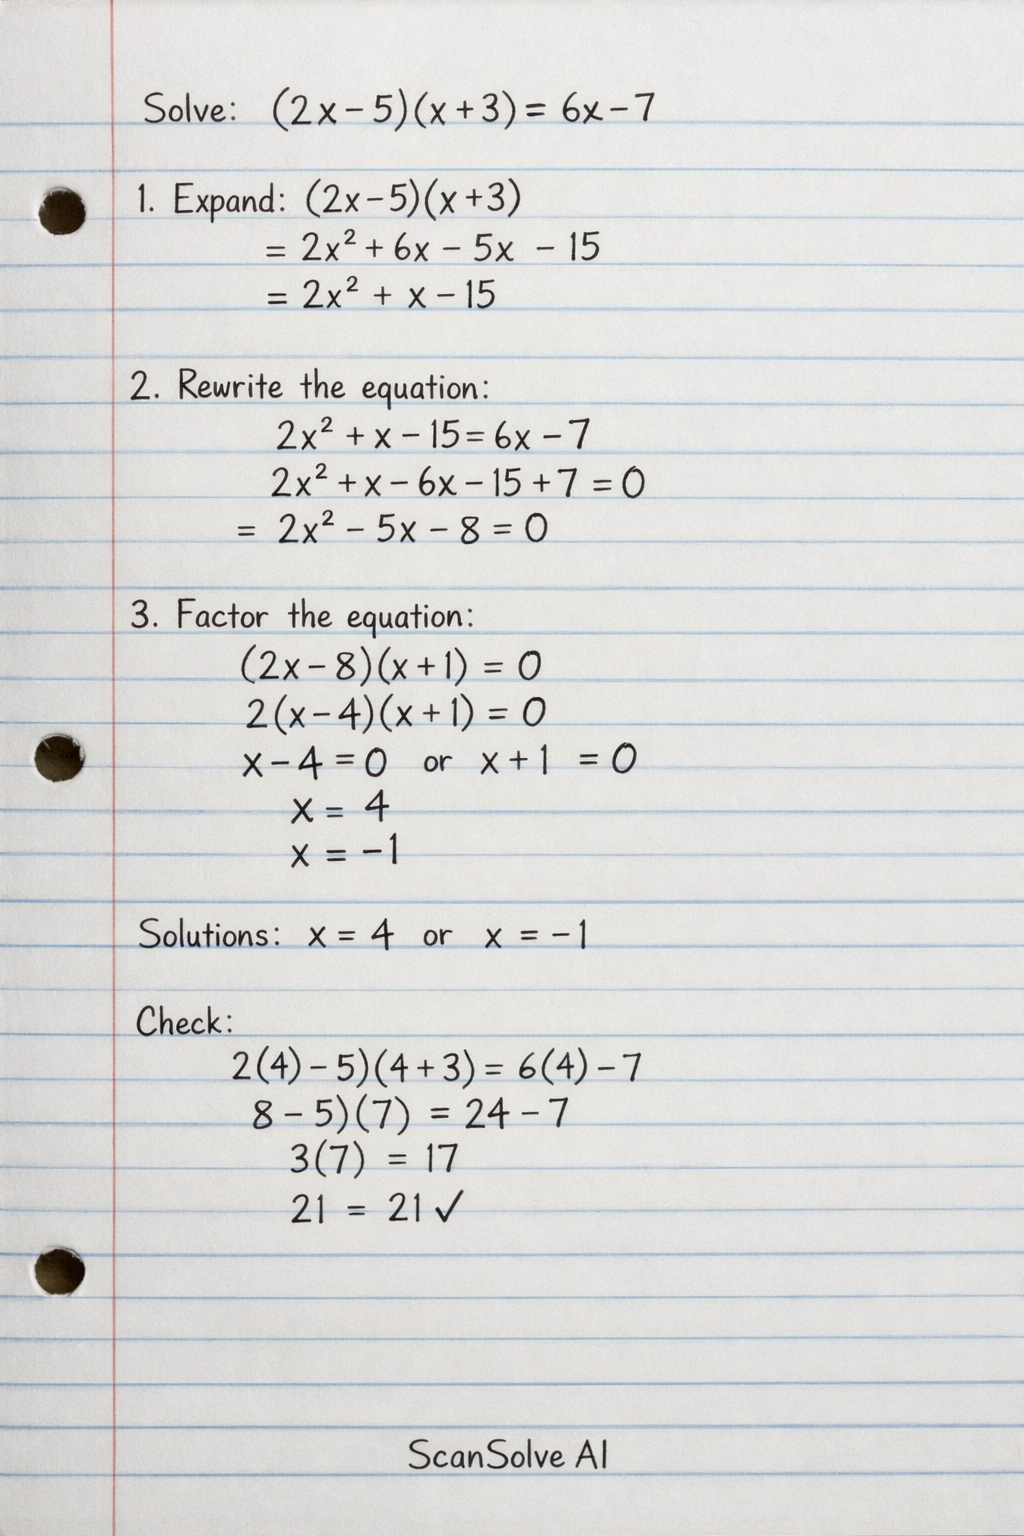 Solve: (2x-5)(x+3) = 6x-7
1. Expand: (2x-5)(x+3)
= 2x² + 6x - 5x - 15
= 2x² + x - 15
2. Rewrite the equation:
2x² + x - 15 = 6x - 7
2x² + x - 6x - 15 + 7 = 0
= 2x² - 5x - 8 = 0
3. Factor the equation:
(2x-8)(x+1) = 0
2(x-4)(x+1) = 0
x-4 = 0 or x+1 = 0
x = 4
x = -1
Solutions: x = 4 or x = -1
Check:
2(4)-5)(4+3) = 6(4)-7
8-5)(7) = 24-7
3(7) = 17
21 = 21 ✓
ScanSolve AI